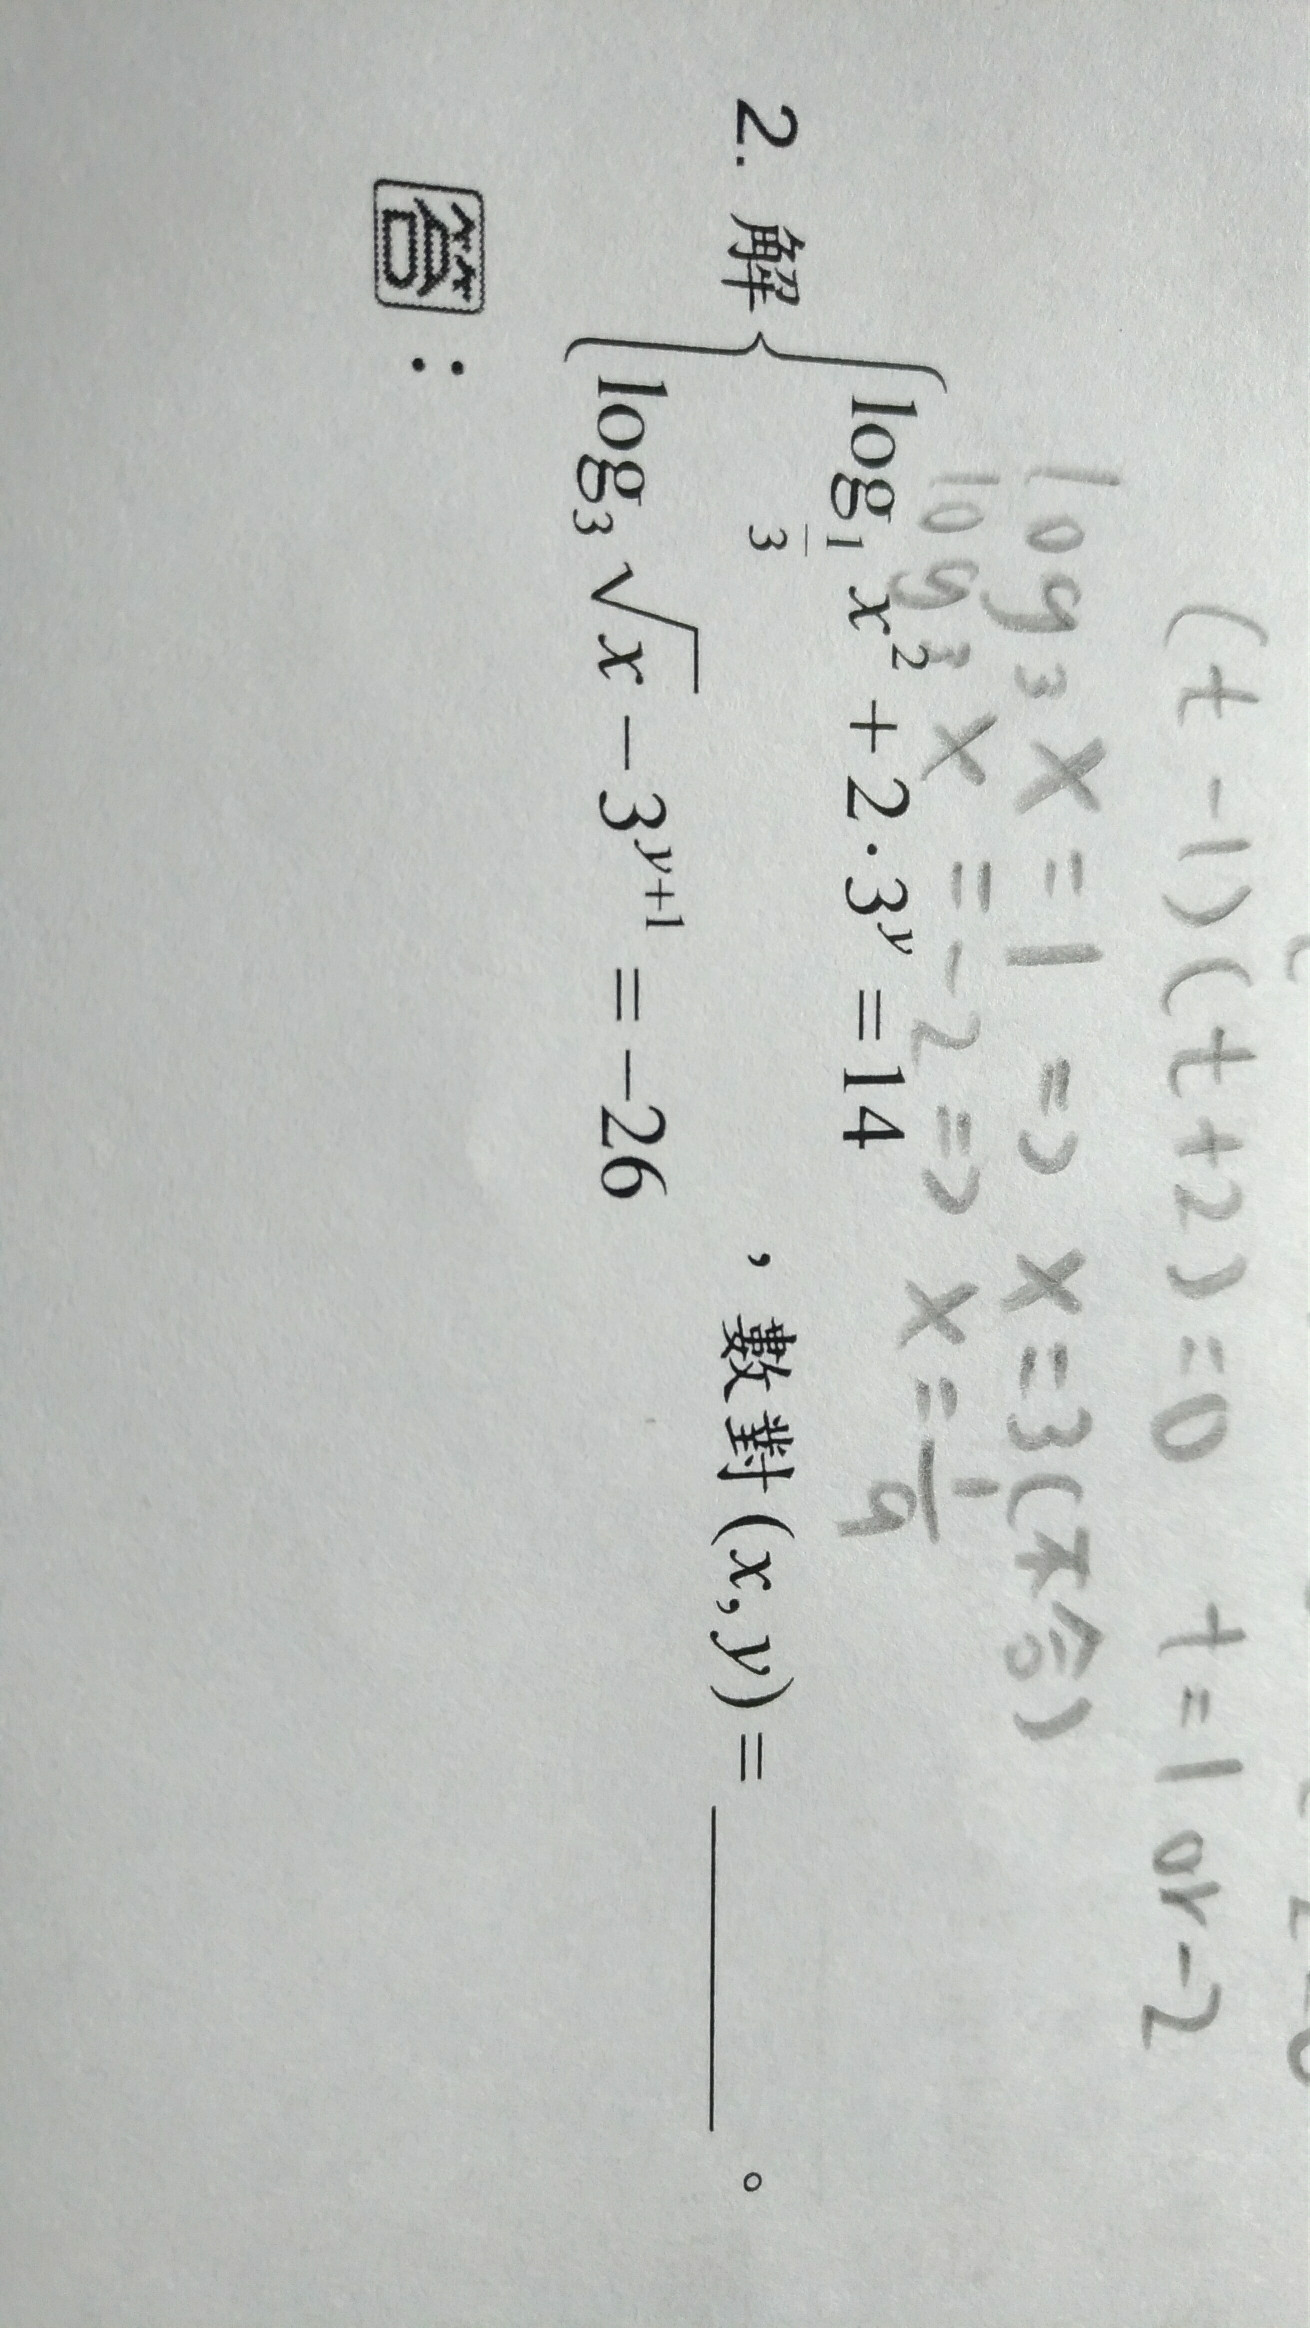 (t-1)(t+2)=0 t=1 or -2
log₃ x = 1 => x=3(不合)
log₃ x = -2 => x = 1/9
2. 解 { log_{1/3} x² + 2·3^y = 14
log₃ √x − 3^{y+1} = −26 , 數對(x, y) = ______ 。
答：